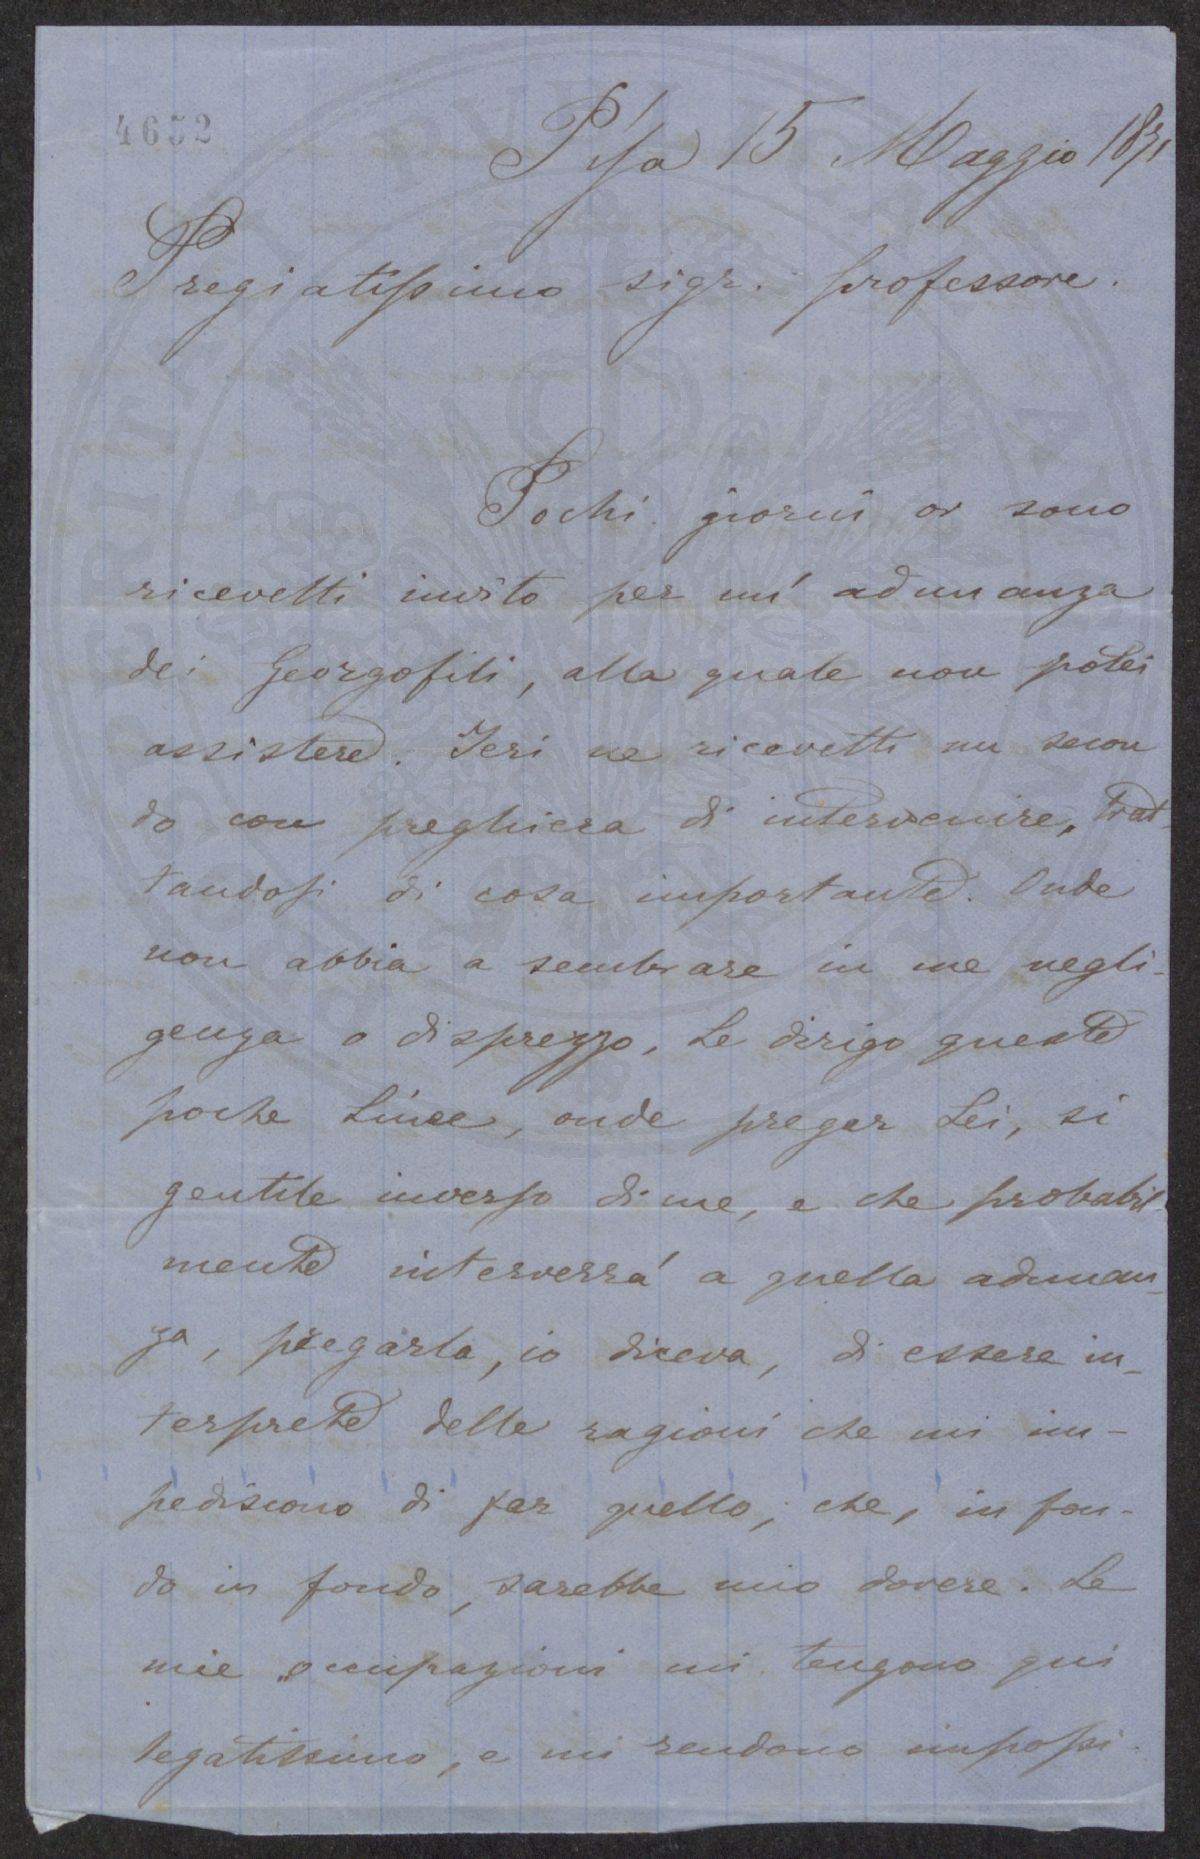 4652
Pisa 15 Maggio 1871
Pregiatissimo sigr. professore.
Pochi giorni or sono
ricevetti invito per un' adunanza
dei Georgofili, alla quale non potei
assistere. Ieri ne ricevetti un secon
do con preghiera di intervenire, trat-
tandosi di cosa importante. Onde
non abbia a sembrare in me negli-
genza o disprezzo, Le dirigo queste
poche Linee, onde pregar Lei, sì
gentile inverso di me, e che probabil-
mente interverrá a quella adunan-
za, pregarla, io diceva, di essere in-
terprete delle ragioni che mi im-
pediscono di far quello, che, in fon-
do in fondo, sarebbe mio dovere. Le
mie occupazioni mi tengono qui
legatissimo, e mi rendono impossi-